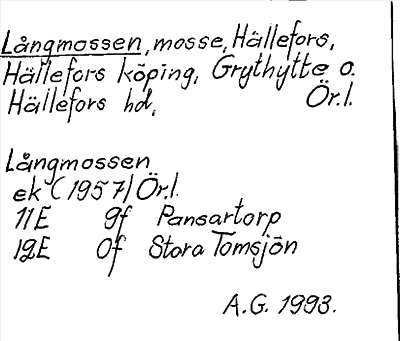 Långmossen, mosse, Hällefors,
Hällefors köping, Grythytte o.
Hällefors hd, Ör.l.
Långmossen
ek (1957) Ör.l.
11E 9f Pansartorp
12E 0f Stora Tomsjön
A.G. 1993.